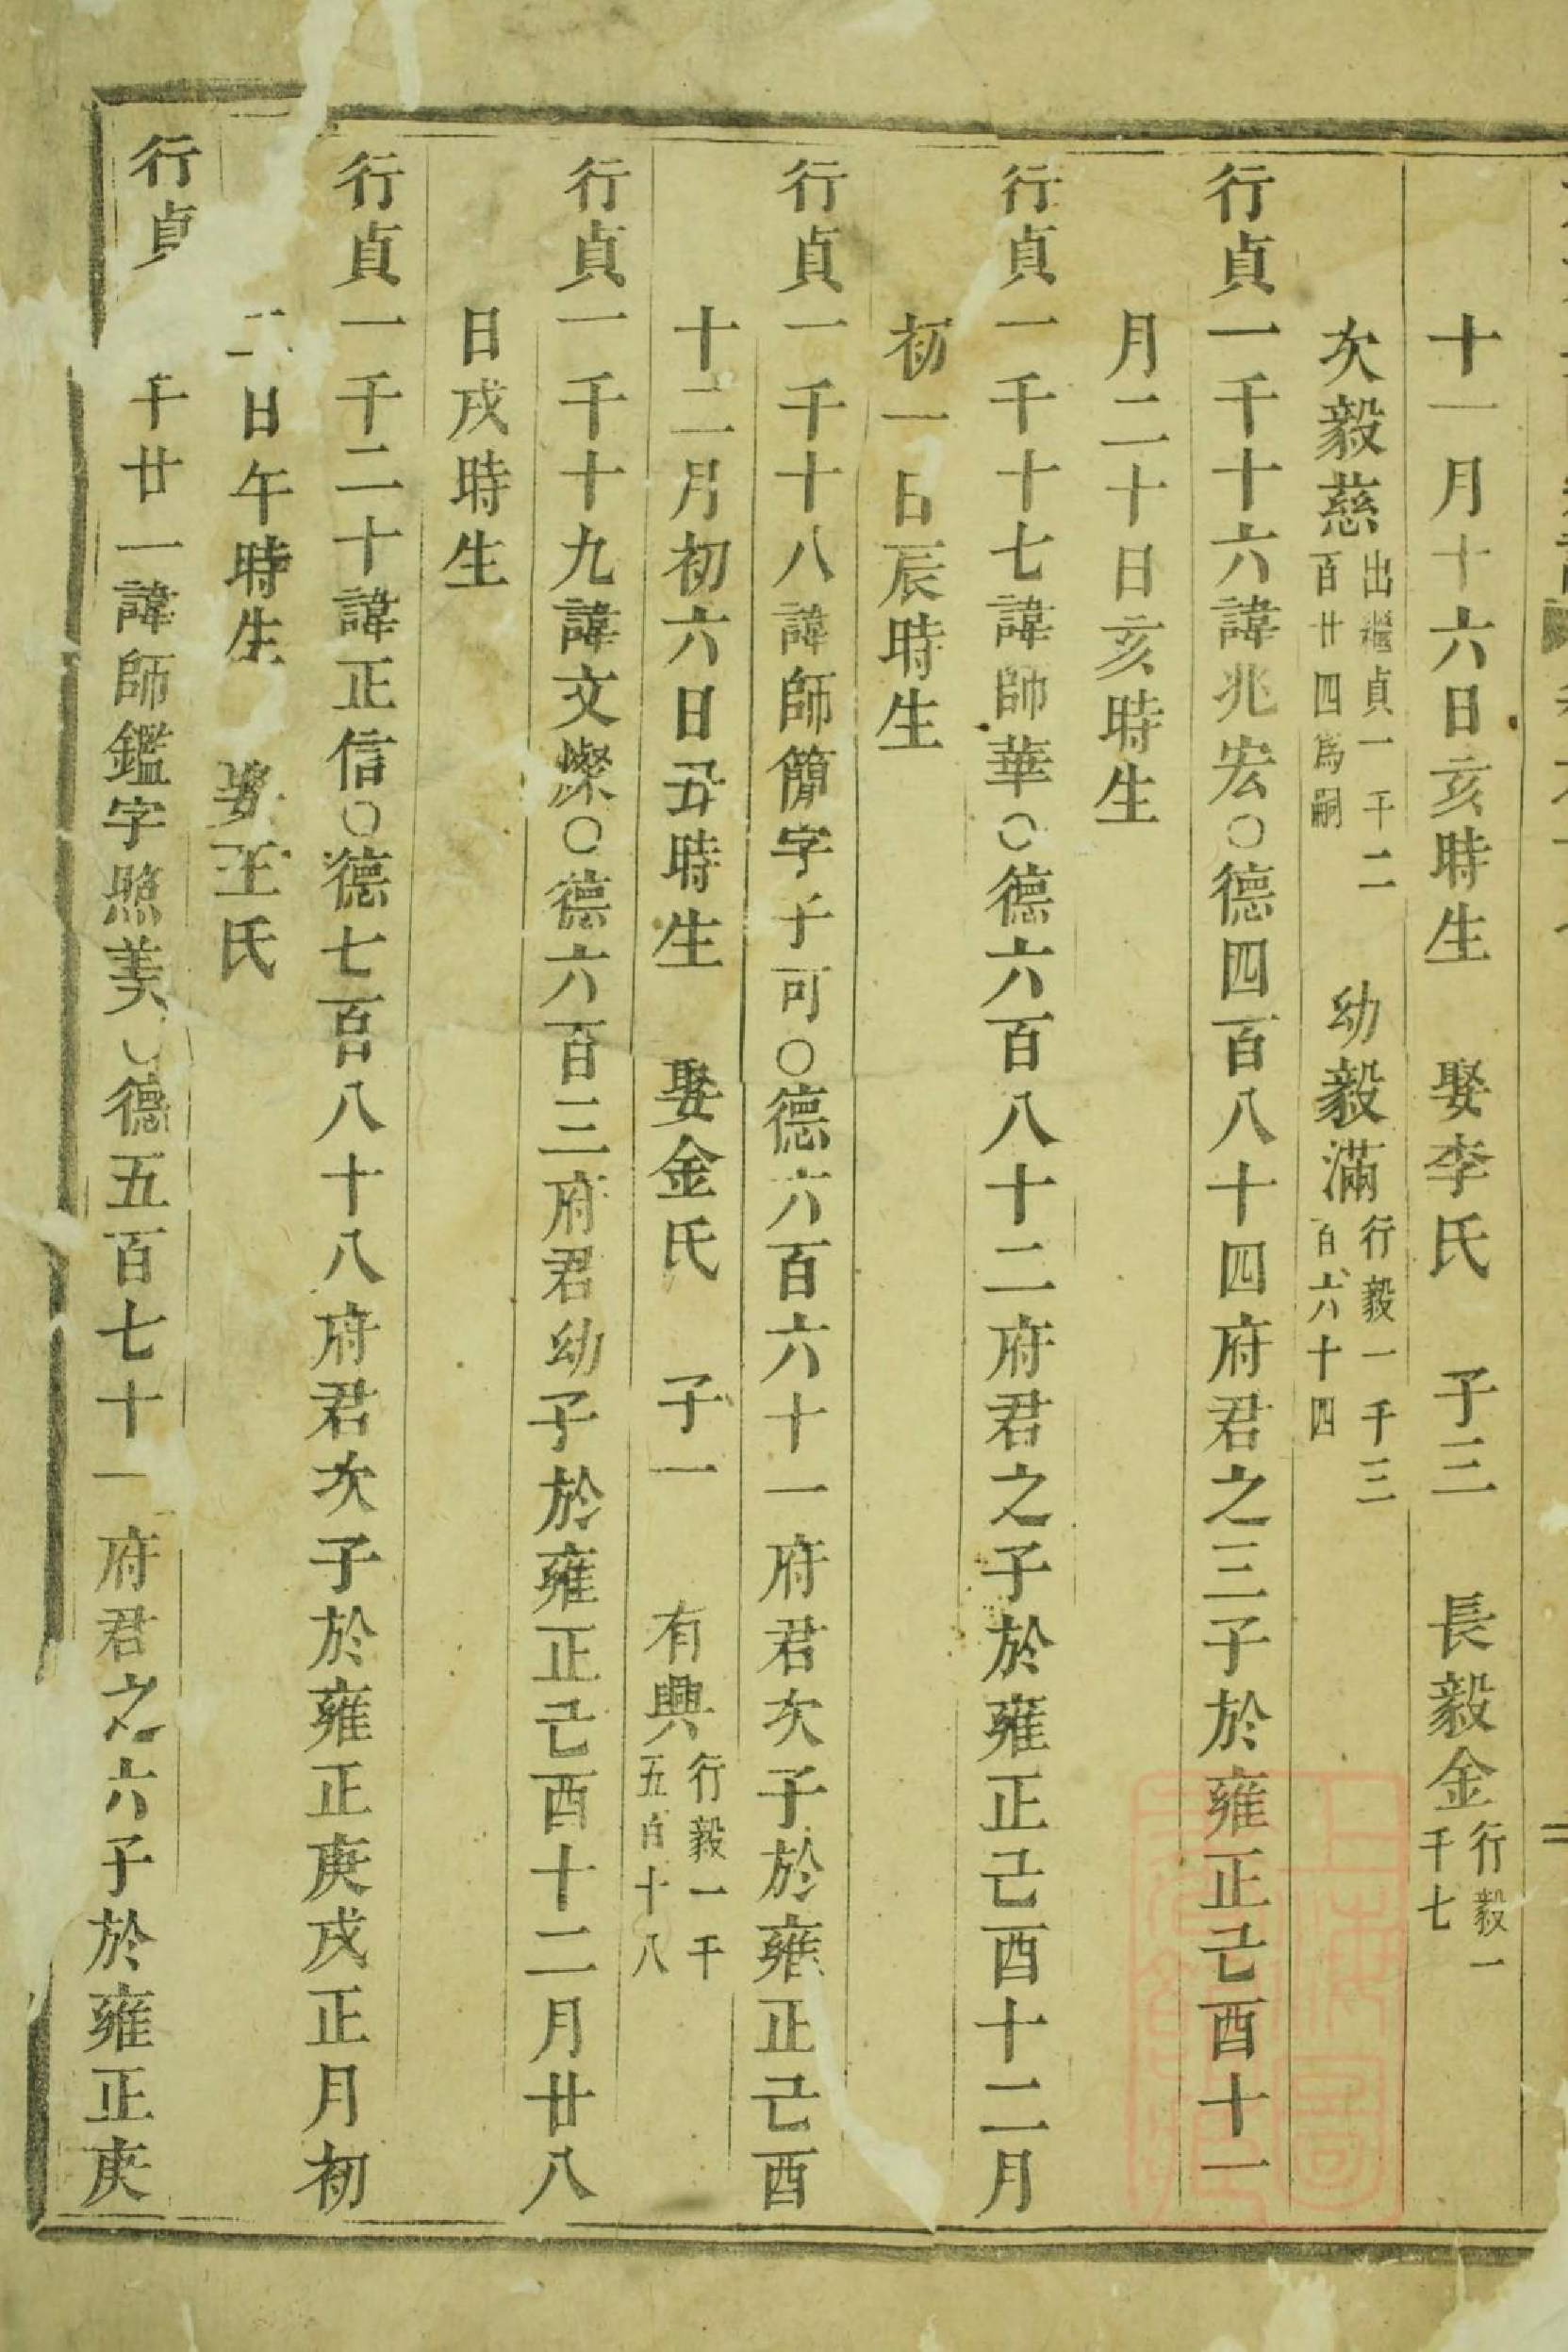 十一月十六日亥時生　娶李氏　子三　長毅金行毅一千七
次毅慈出繼貞一千二百廿四爲嗣　幼毅滿行毅一千三百六十四
行貞一千十六諱兆宏○德四百八十四府君之三子於雍正己酉十一
月二十日亥時生
行貞一千十七諱師華○德六百八十二府君之子於雍正己酉十二月
初一日辰時生
行貞一千十八諱師簡字子可○德六百六十一府君次子於雍正己酉
十二月初六日丑時生　娶金氏　子一　有興行毅一千五百十八
行貞一千十九諱文燦○德六百三府君幼子於雍正己酉十二月廿八
日戌時生
行貞一千二十諱正信○德七百八十八府君次子於雍正庚戌正月初
二日午時生　娶王氏
行貞千廿一諱師鑑字照美○德五百七十一府君之六子於雍正庚
上海圖書館藏